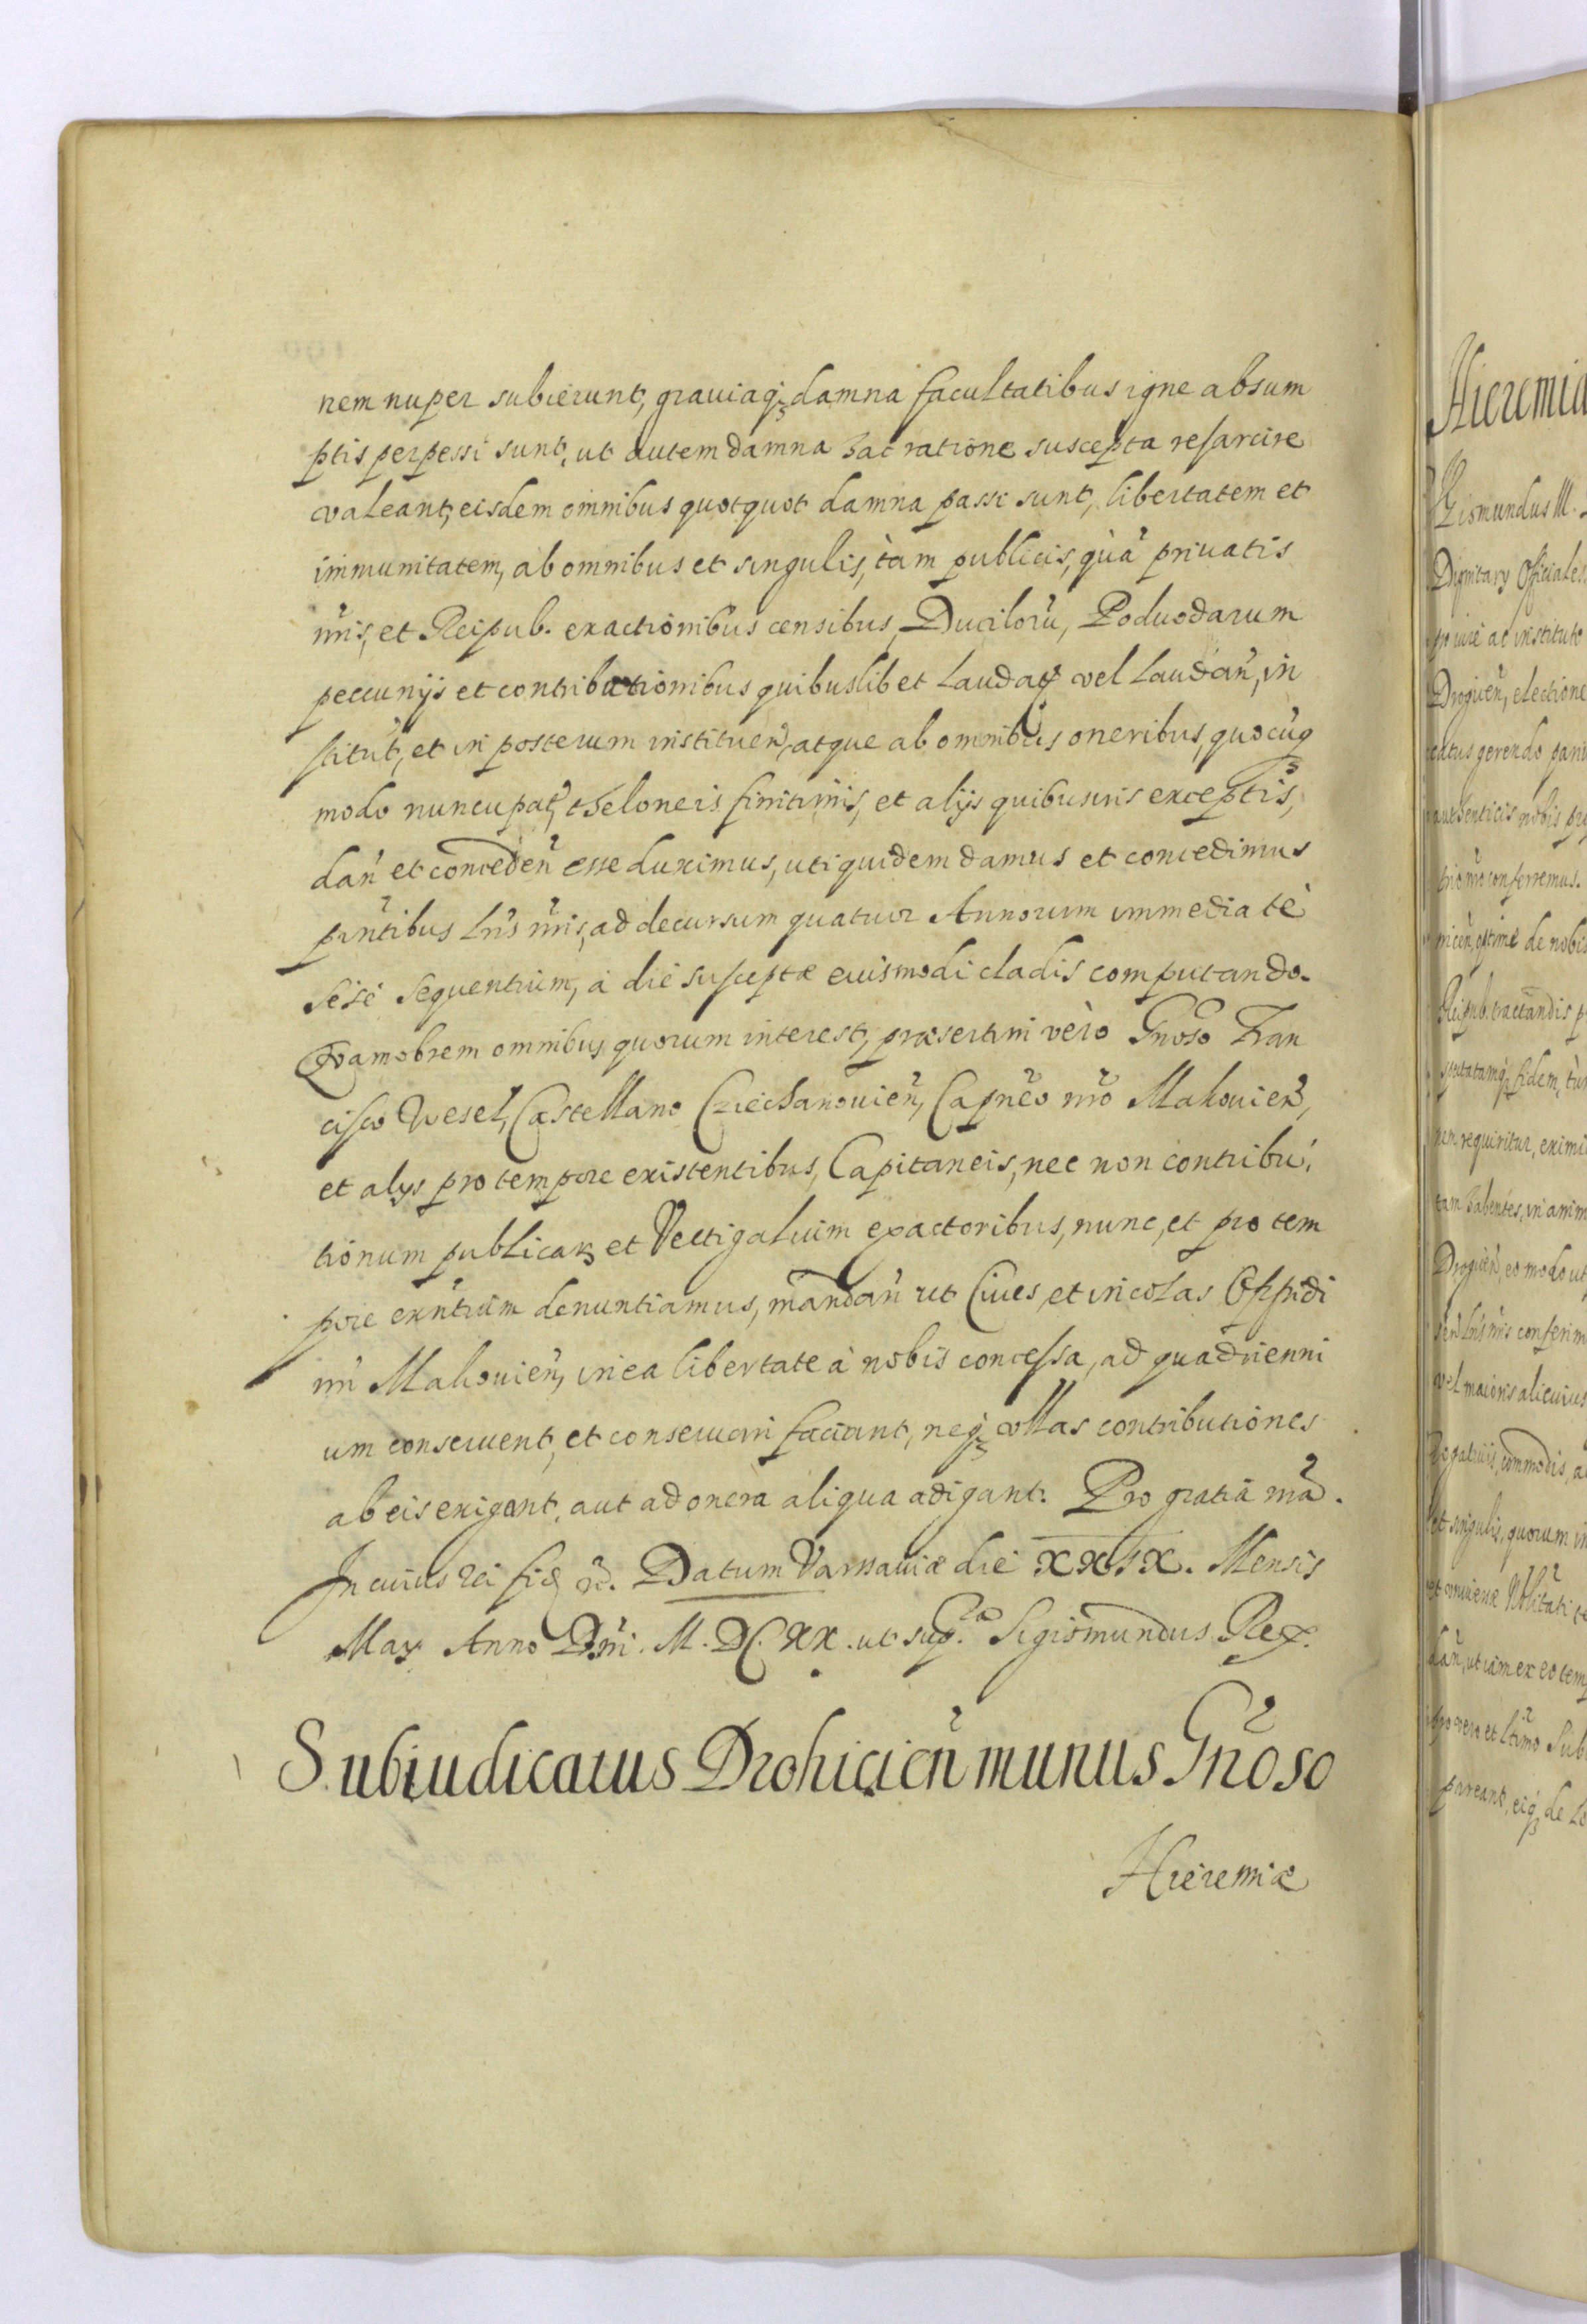 nem nuper subierunt, grauiaq́ꝫ damna facultatibus igne absum
ptis perpessi sunt, ut autem damna hac ratione suscepta resarcire
valeant, eisdem omnibus quotquot damna passi sunt, libertatem et
immunitatem, ab omnibus et singulis, tàm publicis, quà̃ priuatis
nr̃is, et Reipub. exactionibus censibus, Ducilorũ, Poduodarum
peccunijs et contributionibus quibuslibet laudat̃ vel laudañ, in
stitut̃, et in posterum institueñ, atque ab omnibus oneribus, quocũq
modo nuncupat̃, theloneis finitimis, et alijs quibusuis exceptis,
dañ et concedeñ esse duximus, uti quidem damus et concedimus
pñtibus lr̃is nr̃is, ad decursum quatuor Annorum immediatè
sese sequentium, à die susceptæ euismodi cladis computando.
Quamobrem omnibus, quorum interest, præsertim vèro Gnõso Fran
cisco Wesel, Castellano Cziechanouieñ, Capnẽo nr̃o Makouieñ,
et alys pro tempore existentibus, Capitaneis, nec non contribu,
tionum publicaꝝ et Vectigalium exactoribus, nunc, et pro tem
pore exñtium denuntiamus, mandañ ut Ciues, et incolas Oppidi
nr̃i Makouieñ, in ea libertate à nobis concessa, ad quadrienni
um conseruent, et conseruari faciant, neq́ꝫ vllas contributiones
ab eis exigant, aut ad onera aliqua adigant. Pro gratia nr̃a.
In cuius rei fid̃ r̃c. Datum Varsauiæ die XXIX. Mensis
May Anno Dñi. M.DC.XX. ut sup.ͣ Sigismundus Rex.
Subiudicatus Drohicieñ munus Gnõso
Hieremiæ
Hieremia
Dignitary Officiales
ac instituto
electione
gerendo
nobis
conferremus.
de nobis
tractandis
fidem,
requiritur, eximi
habentes, in anim
eo modo ut
conferim
maioris alicuius
commodis,
singulis, quorum in
ut iam ex eo tem
vero et
pareant, eiq́ꝫ de